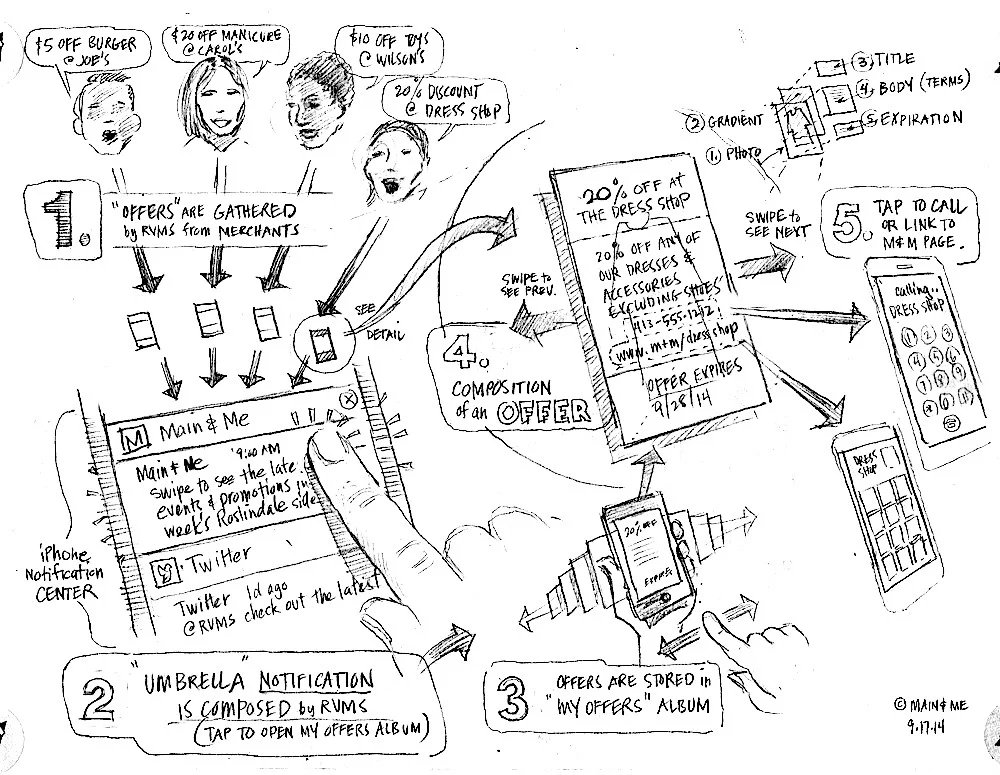 $5 OFF BURGER
@ JOE'S
$20 OFF MANICURE
@ CAROL'S
$10 OFF TOYS
@ WILSON'S
20% DISCOUNT
@ DRESS SHOP
1.
"OFFERS" ARE GATHERED
by RVMS from MERCHANTS
SEE
DETAIL
M Main & Me
Main & Me 9:00 AM
Swipe to see the late
events & promotions in
week's Roslindale side
Twitter
Twitter 1d ago
@RVMS check out the latest
iPhone
Notification
CENTER
2
"UMBRELLA" NOTIFICATION
IS COMPOSED by RVMS
(TAP TO OPEN MY OFFERS ALBUM)
3
OFFERS ARE STORED in
"MY OFFERS" ALBUM
20% OFF
EXPIRES
4.
COMPOSITION
of an OFFER
SWIPE to
SEE PREV.
20% OFF AT
THE DRESS SHOP
20% OFF ANY OF
OUR DRESSES &
ACCESSORIES
EXCLUDING SHOES
413-555-1212
www.m+m/dressshop
OFFER EXPIRES
9/28/14
SWIPE to
SEE NEXT
③ TITLE
④ BODY (TERMS)
⑤ EXPIRATION
② GRADIENT
① PHOTO
5.
TAP TO CALL
OR LINK TO
M&M PAGE.
calling..
DRESS SHOP
1 2 3
4 5 6
7 8 9
* 0 #
DRESS
SHOP
© MAIN & ME
9.17.14